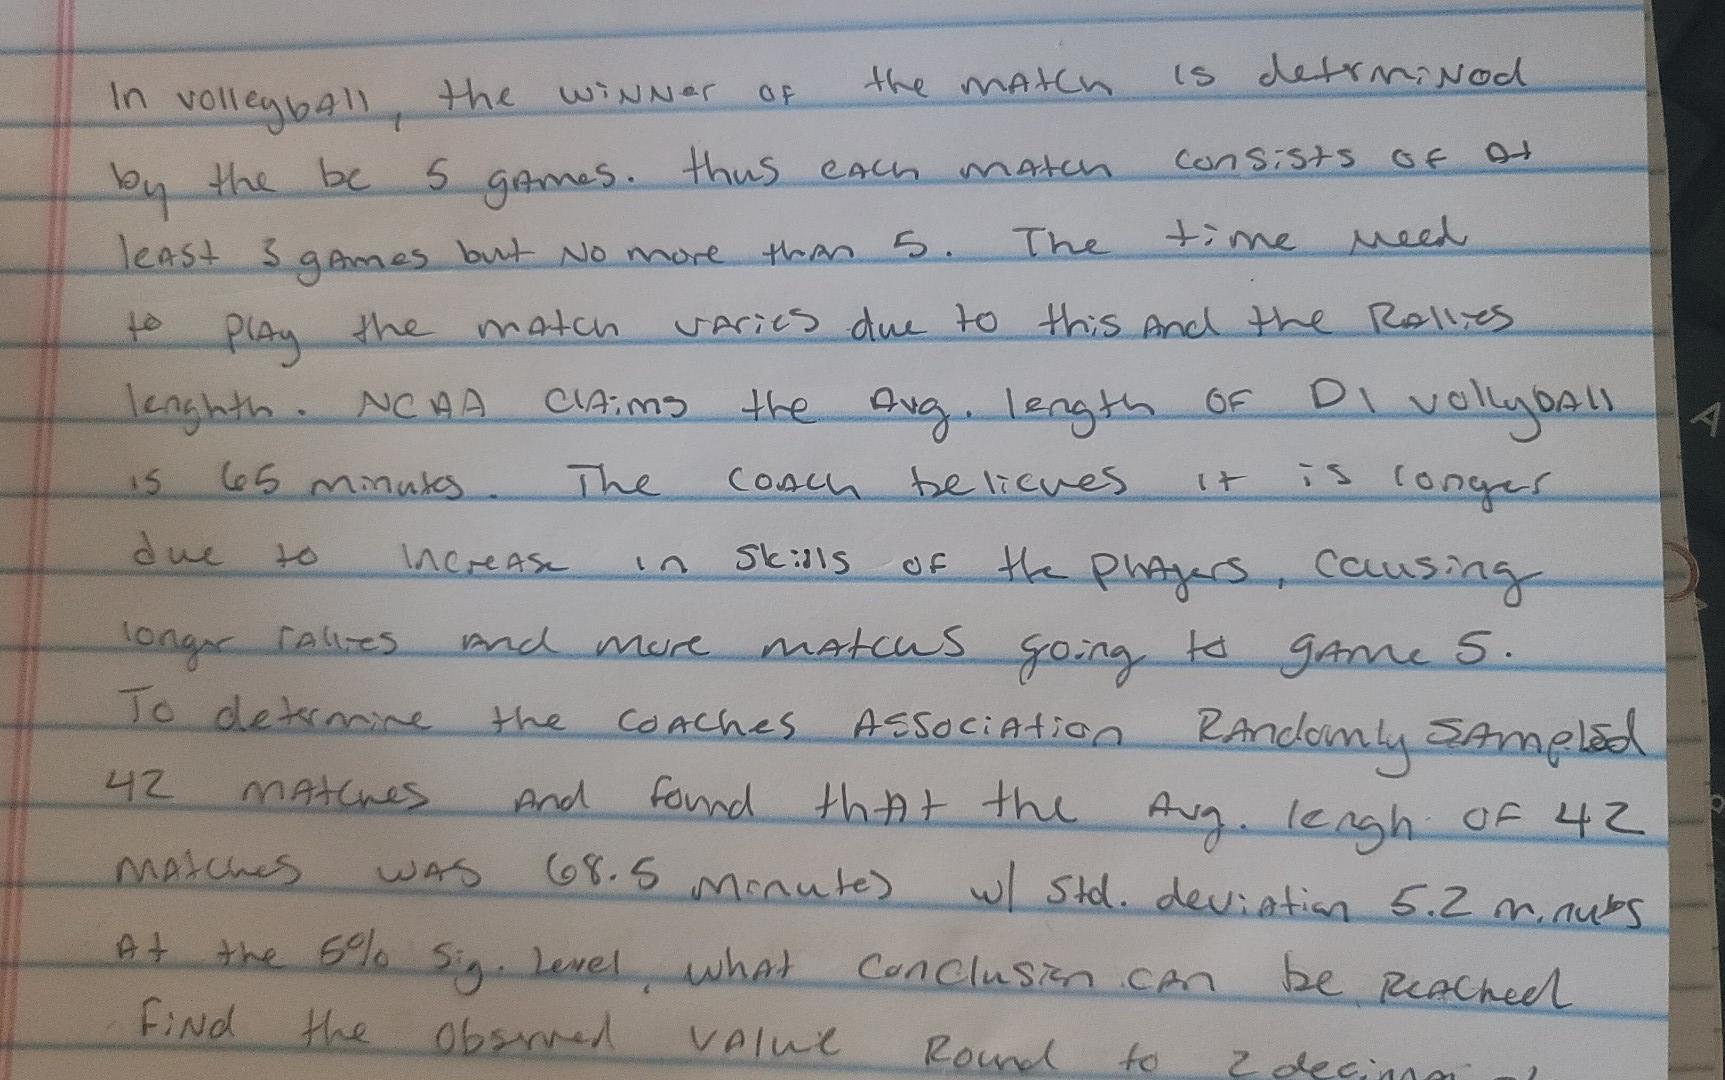 In volleyball, the winner of the match is detrminod
by the bc 5 games. thus each match consists of at
least 3 games but no more than 5. The time need
to play the match varies due to this and the Rallies
lenghth. NCAA claims the Avg. length of D1 vollyball
is 65 minutes. The coach believes it is longer
due to increase in skills of the players, causing
longer rallies and more matches going to game 5.
To determine the coaches Association Randomly sampled
42 matches and found that the Avg. lengh of 42
matches was 68.5 minutes w/ std. deviation 5.2 minutes
At the 5% sig. level, what conclusion can be Reached
Find the observed value Round to 2 decimal